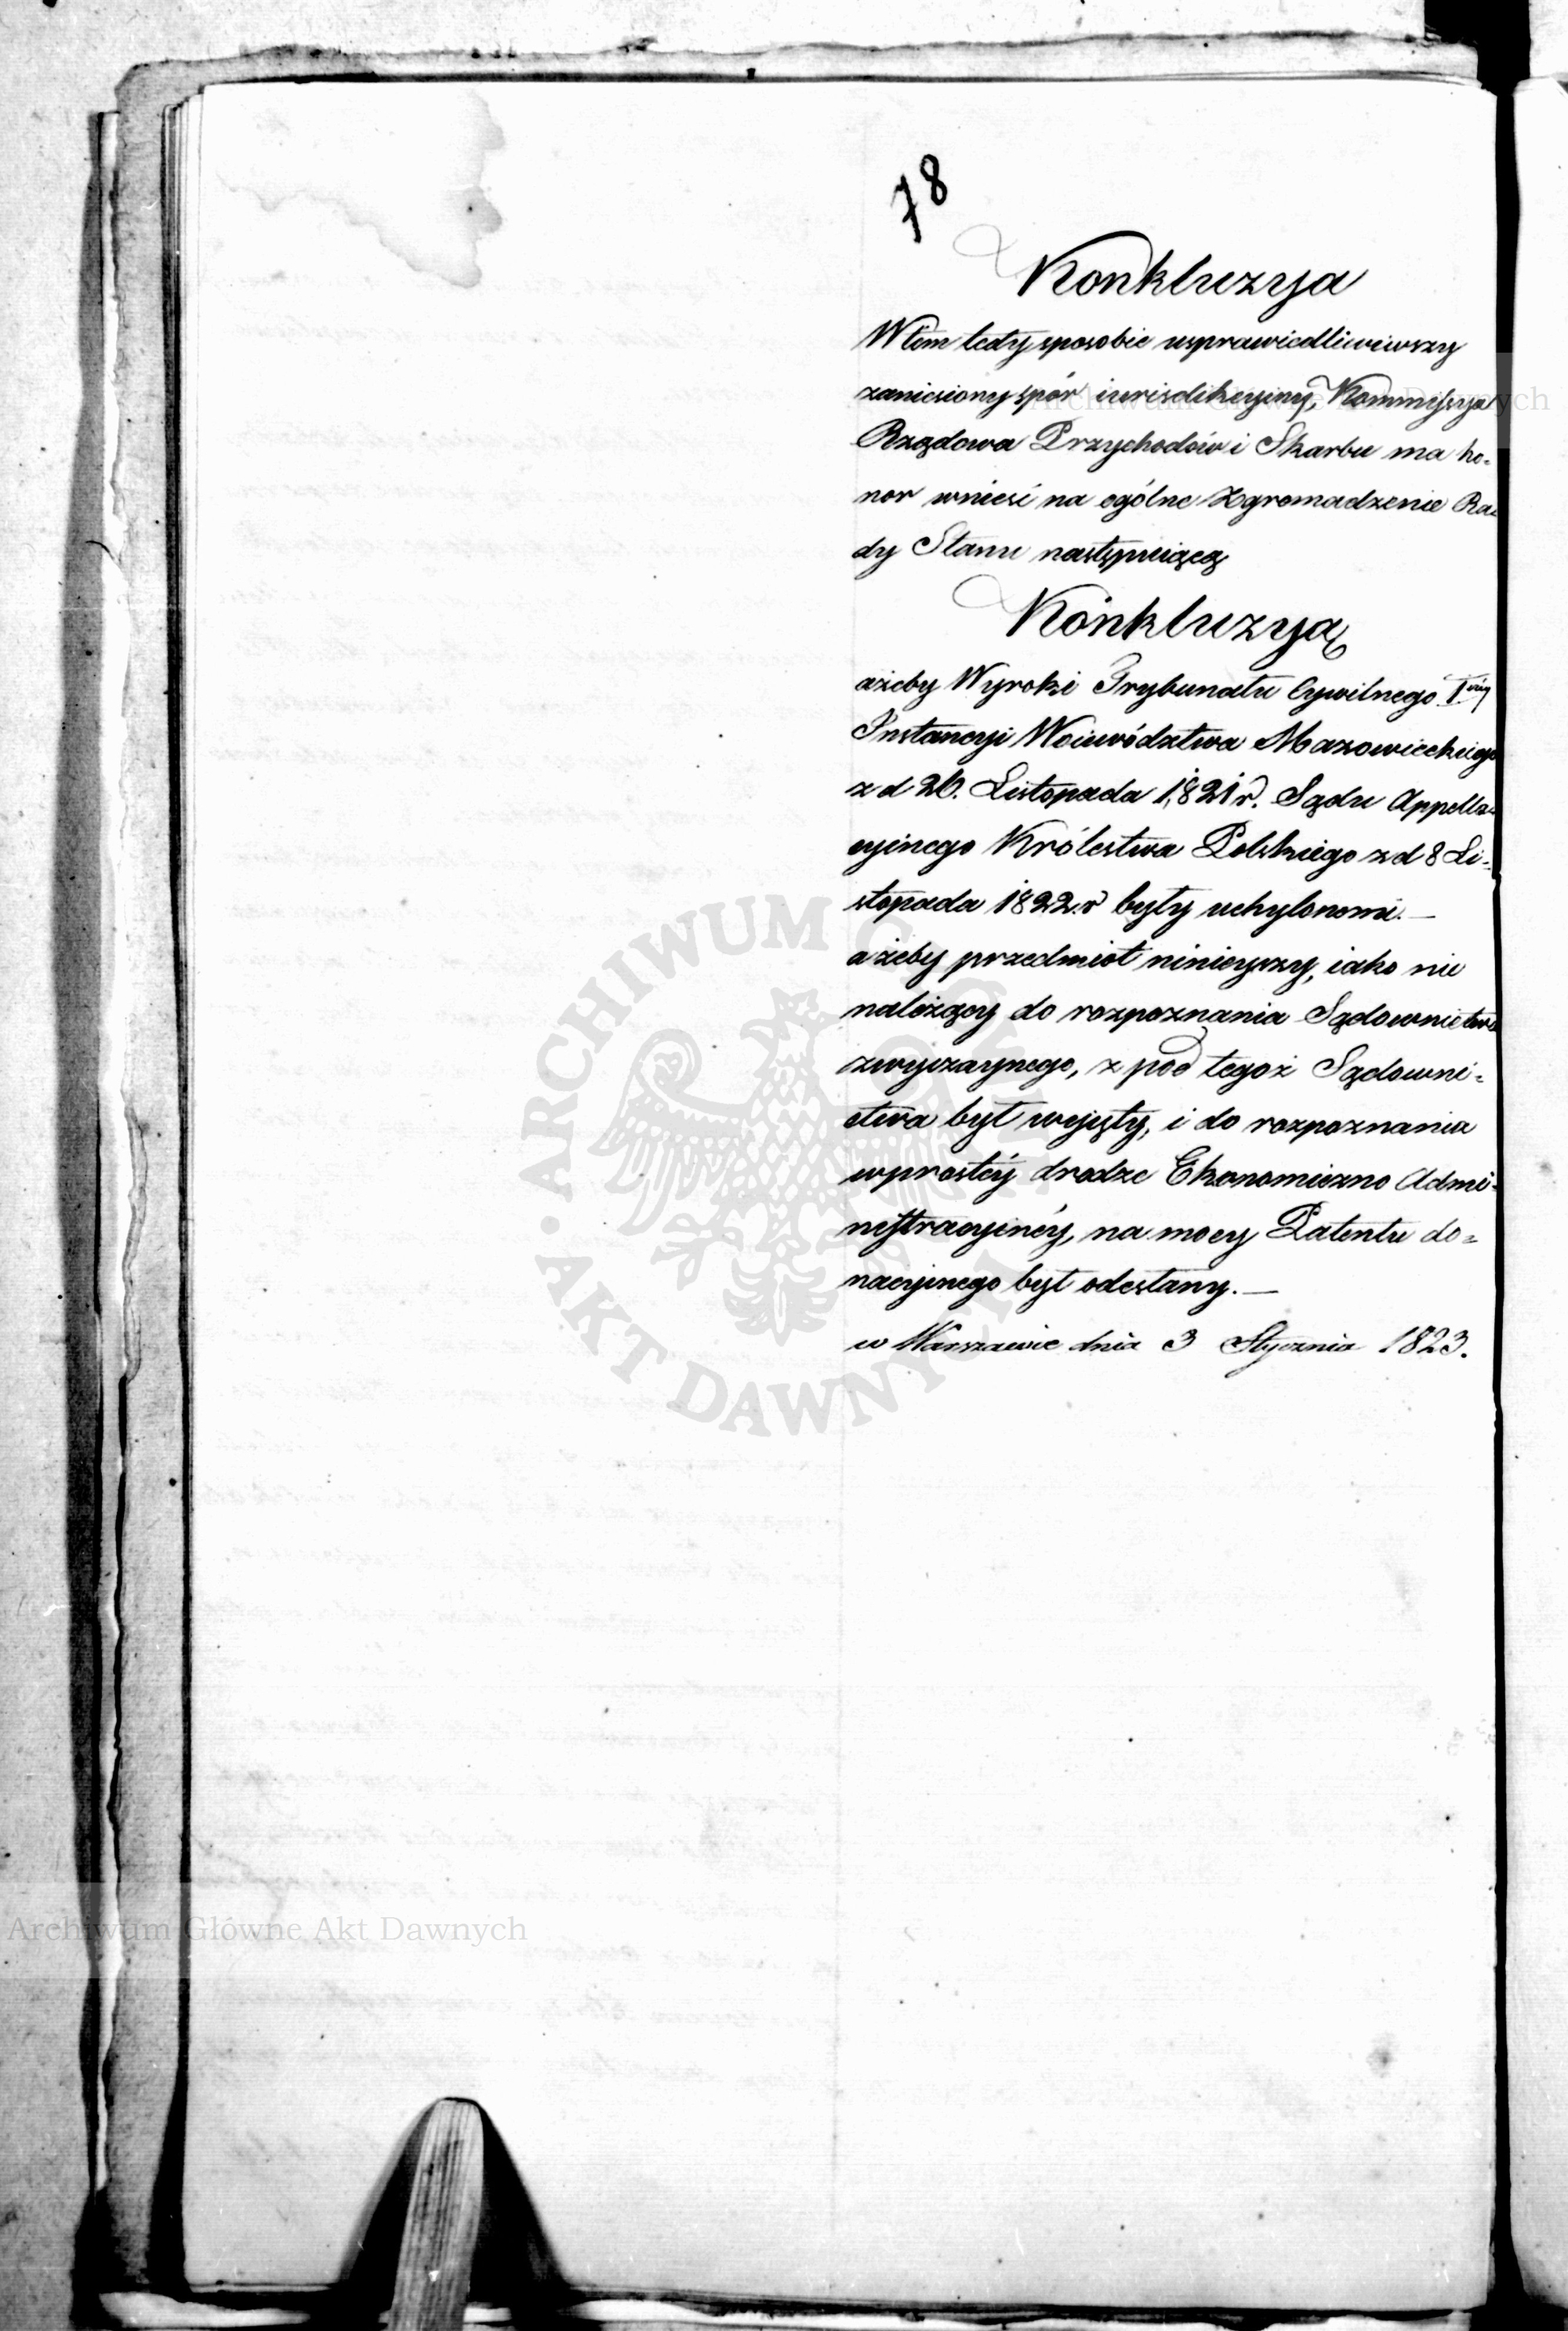 78
Konkluzya
W tem tedy sposobie usprawiedliwiwszy
zaniesiony spór iurisdikcyiny, Kommissya
Rządowa Przychodów i Skarbu ma ho-
nor wnieść na ogólne Zgromadzenie Ra-
dy Stanu następuiącą
Konkluzyą
ażeby Wyroki Trybunału Cywilnego Iwszéj
Instancyi Woiewództwa Mazowieckiego
z d 26. Listopada 1821 r. Sądu Appella-
cyinego Królestwa Polskiego z d 8 Li-
stopada 1822. r były uchylonemi. —
a żeby przedmiot ninieyszy, iako nie
należący do rozpoznania Sądownictwa
zwyczaynego, z pod tegoż Sądowni-
ctwa był wyięty, i do rozpoznania
w prostéy drodze Ekonomiczno Admi-
nistracyinéy, na mocy Patentu do-
nacyinego był odesłany. —
w Warszawie dnia 3 Stycznia 1823.
Archiwum Główne Akt Dawnych
Archiwum Główne Akt Dawnych
ARCHIWUM G
AKT DAWNYCH